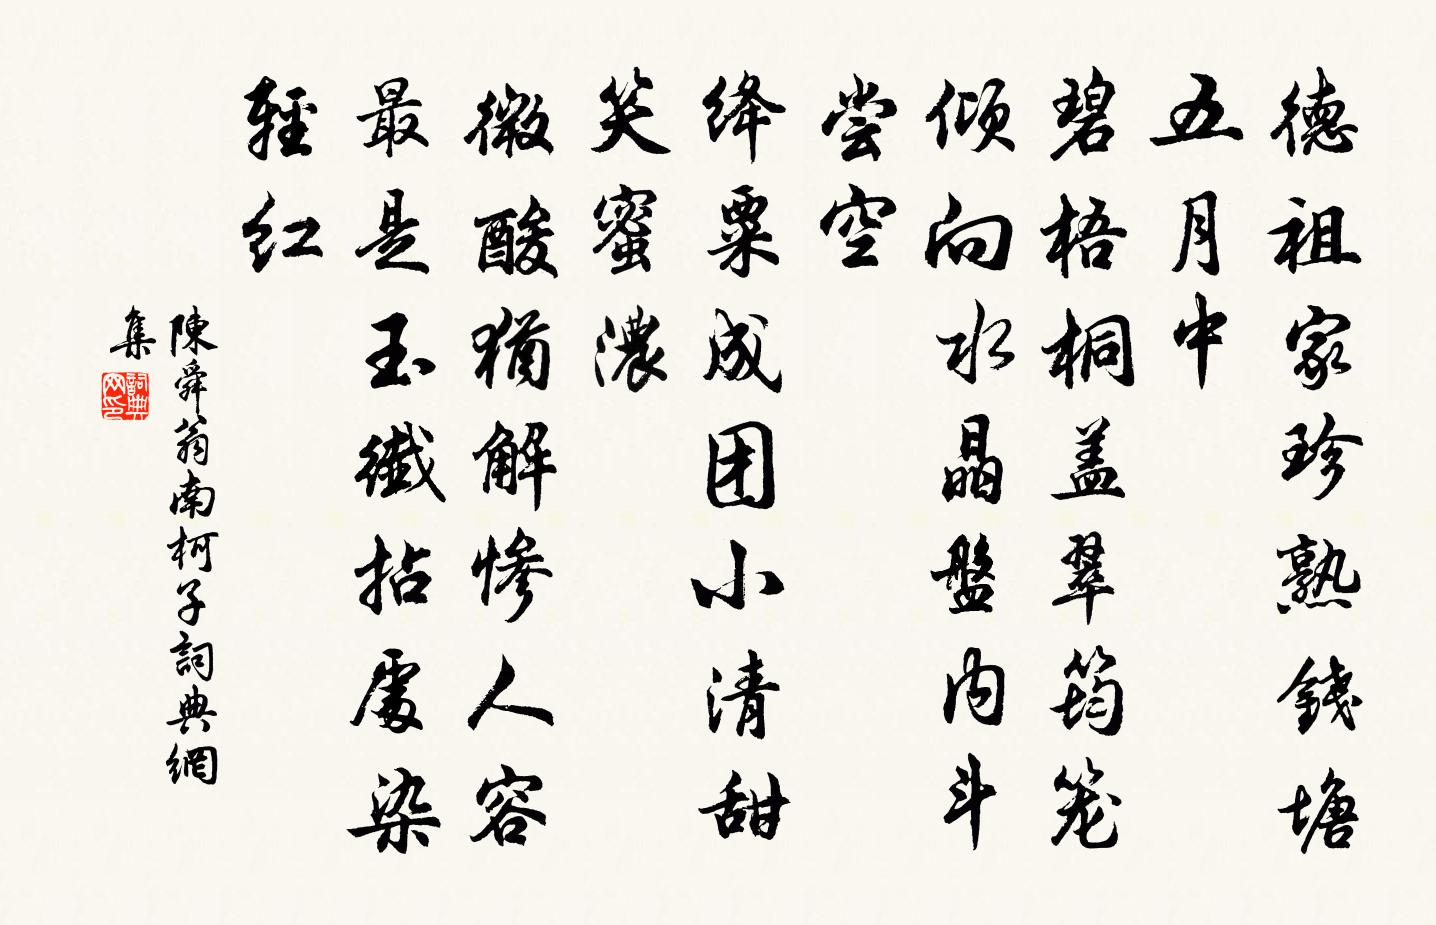 德祖家珍熟錢塘
五月中
碧梧桐盖翠筠笼
倾向水晶盤内斗
尝空
绛粟成团小清甜
笑蜜濃
微酸猶解惨人容
最是玉纖拈處染
輕红
陳舜翁南柯子詞典網
集
詞典
网印